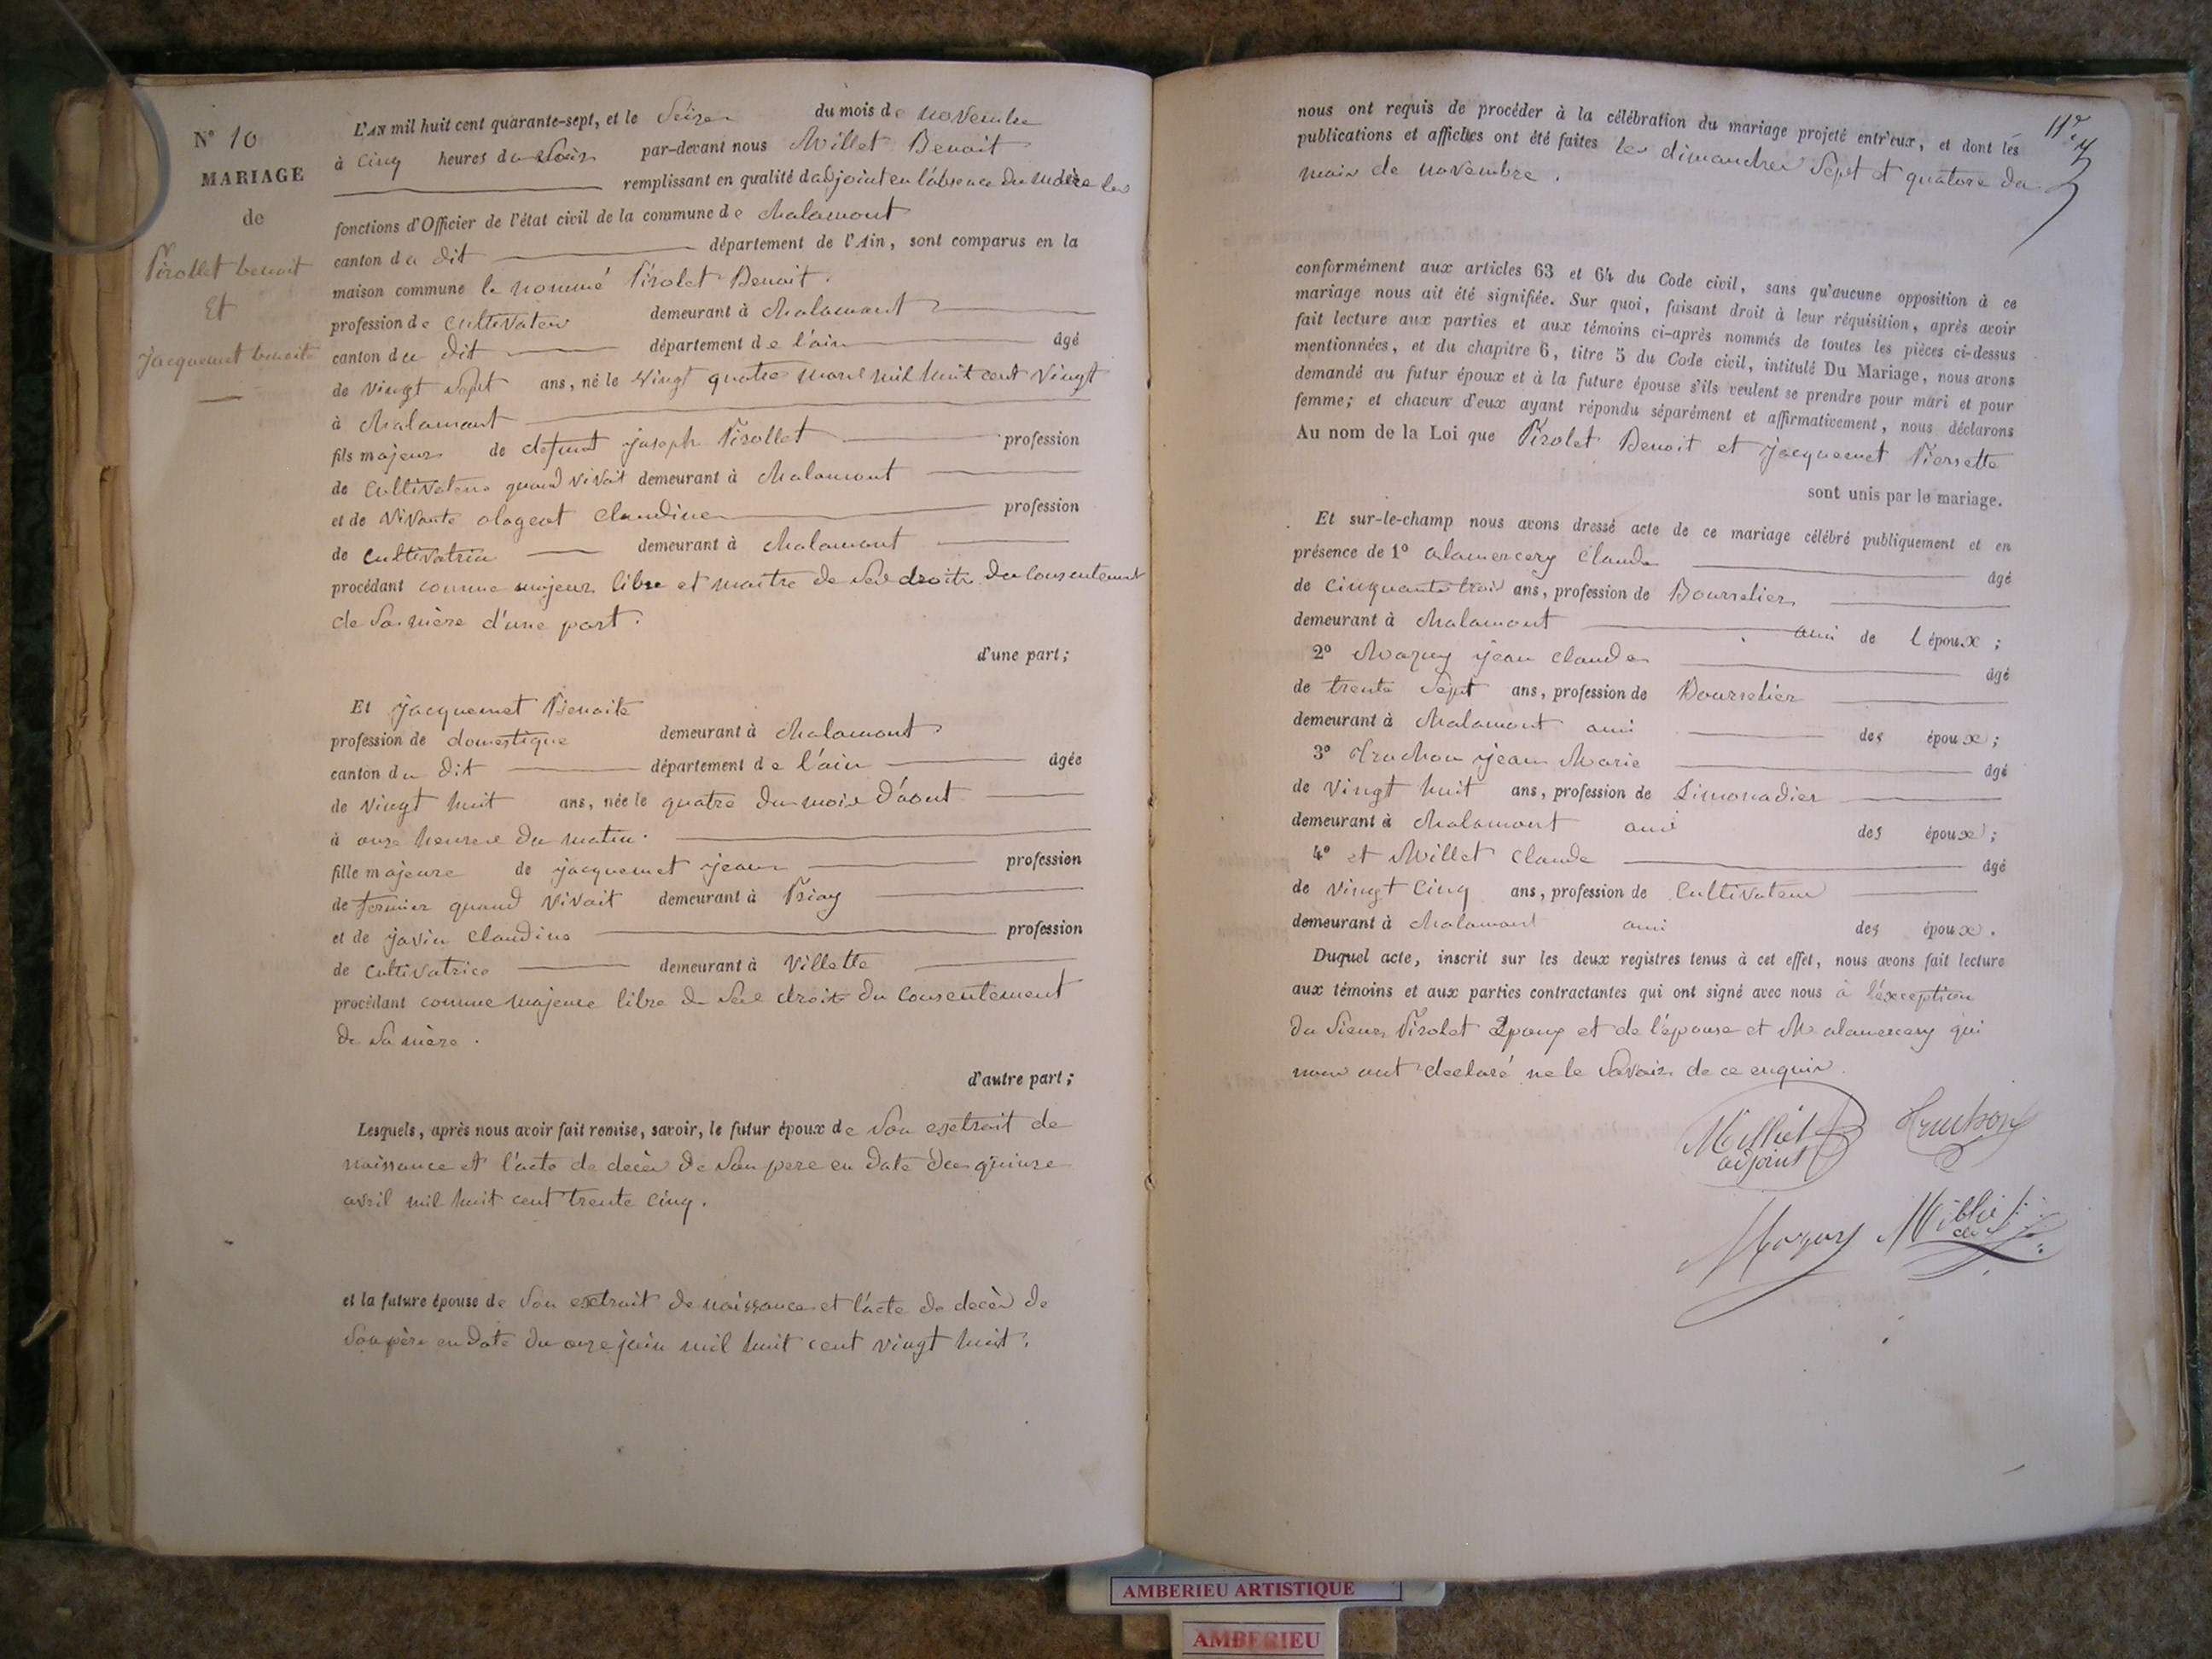 N° 10
MARIAGE
de
Pirollet benoit
Et
jacquemet benoite
L'AN mil huit cent quarante-sept, et le Seize du mois de novembre
à cinq heures du Soir par-devant nous Millet Benoit
remplissant en qualité d'adjoint en l'absence du Maire les
fonctions d'Officier de l'état civil de la commune de chalamont
canton du dit département de l'Ain, sont comparus en la
maison commune le nommé Pirolet Benoit.
profession de cultivateur demeurant à chalamont
canton du dit département de l'ain âgé
de vingt Sept ans, né le vingt quatre mars mil huit cent vingt
à chalamont
fils majeur de defunt joseph Pirollet profession
de cultivateur quand vivait demeurant à chalamont
et de vivante alageat claudine profession
de cultivatrice demeurant à chalamont
procédant comme majeur libre et maitre de Ses droits du consentement
de Sa mère d'une part.
d'une part;
Et jacquemet Benoite
profession de domestique demeurant à chalamont
canton du dit département de l'ain âgée
de vingt huit ans, née le quatre du mois d'aout
à onze heures du matin.
fille majeure de jacquemet jean profession
de fermier quand vivait demeurant à Priay
et de javin claudine profession
de cultivatrice demeurant à Villette
procédant comme majeure libre de Ses droits du consentement
de Sa mère.
d'autre part;
Lesquels, après nous avoir fait remise, savoir, le futur époux de Son extrait de
naissance et l'acte de decès de Son pere en date du quinze
avril mil huit cent trente cinq.
et la future épouse de Son extrait de naissance et l'acte de decès de
Son père en date du onze juin mil huit cent vingt huit.
11e
nous ont requis de procéder à la célébration du mariage projeté entr'eux, et dont les
publications et affiches ont été faites les dimanches Sept et quatorze du
mois de novembre.
conformément aux articles 63 et 64 du Code civil, sans qu'aucune opposition à ce
mariage nous ait été signifiée. Sur quoi, faisant droit à leur réquisition, après avoir
fait lecture aux parties et aux témoins ci-après nommés de toutes les pièces ci-dessus
mentionnées, et du chapitre 6, titre 5 du Code civil, intitulé Du Mariage, nous avons
demandé au futur époux et à la future épouse s'ils veulent se prendre pour mari et pour
femme; et chacun d'eux ayant répondu séparément et affirmativement, nous déclarons
Au nom de la Loi que Pirolet Benoit et jacquemet Pierrette
sont unis par le mariage.
Et sur-le-champ nous avons dressé acte de ce mariage célébré publiquement et en
présence de 1° alamercery Claude âgé
de cinquante trois ans, profession de Bourrelier
demeurant à chalamont ami de l époux;
2° Mazuy jean claude âgé
de trente Sept ans, profession de Bourrelier
demeurant à chalamont ami des époux;
3° Truchon jean Marie âgé
de vingt huit ans, profession de Limonadier
demeurant à chalamont ami des époux;
4° et Millet claude âgé
de vingt cinq ans, profession de cultivateur
demeurant à chalamont ami des époux.
Duquel acte, inscrit sur les deux registres tenus à cet effet, nous avons fait lecture
aux témoins et aux parties contractantes qui ont signé avec nous à l'exception
du Sieur Pirolet Epoux et de l'épouse et Mr alamercery qui
nous ont declaré ne le Savoir de ce enquis.
Milliet Truchon
adjoint
Mazuy Milliet
AMBERIEU ARTISTIQUE
AMBERIEU